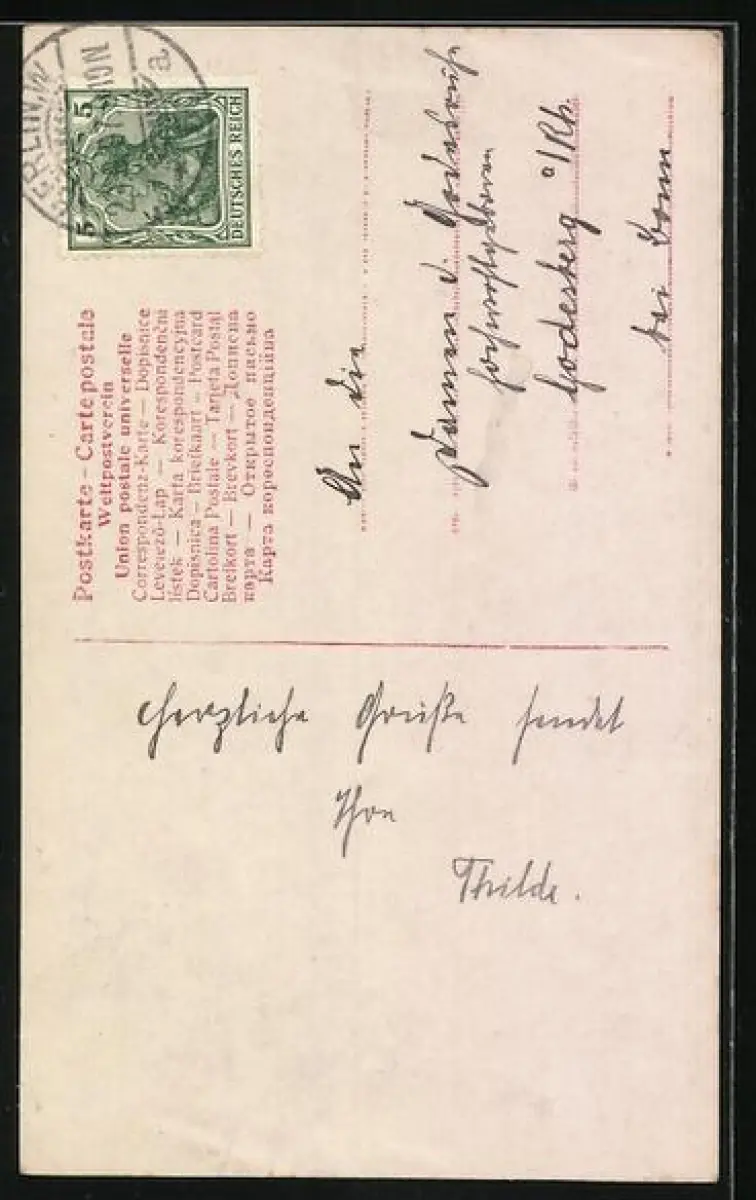 BERLIN.W
10N
a
5 5
DEUTSCHES REICH
Postkarte – Carte postale
Weltpostverein
Union postale universelle
Correspondenz-Karte — Dopisnice
Levelező-Lap — Korespondenční
lístek — Karta korespondencyjna
Dopisnica — Briefkaart — Postcard
Cartolina Postale — Tarjeta Postal
Brefkort — Brevkort — Дописна
карта — Открытое письмо
Карта кореспонденційна
An die
Damen d.
Godesberg a/Rh.
bei Bonn
Herzliche Grüße sendet
Thilde.